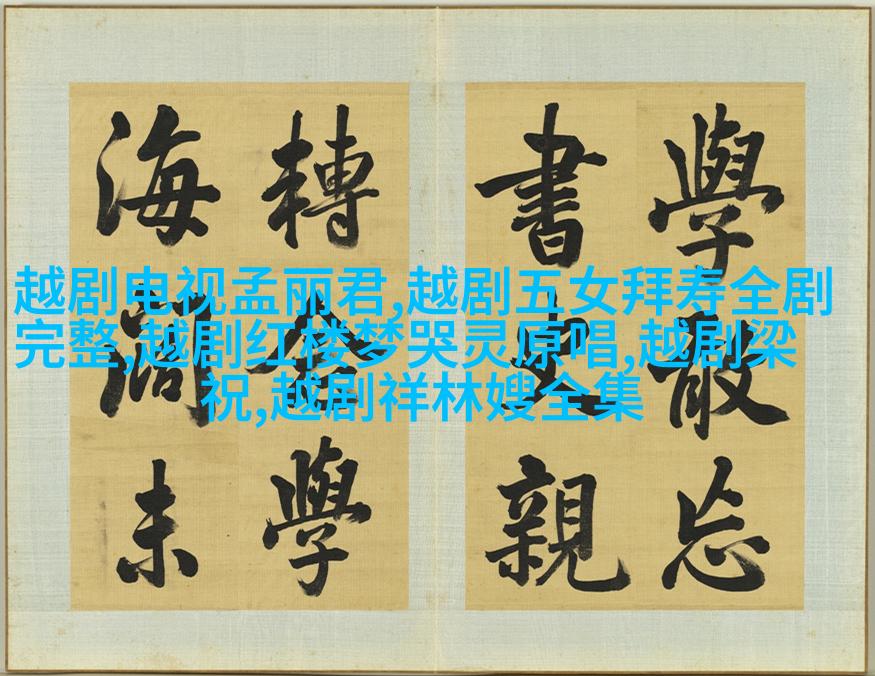 越剧电视孟丽君,越剧五女拜寿全剧
完整,越剧红楼梦哭灵原唱,越剧梁
祝,越剧祥林嫂全集
學敢忘
書史親
轉學
海未